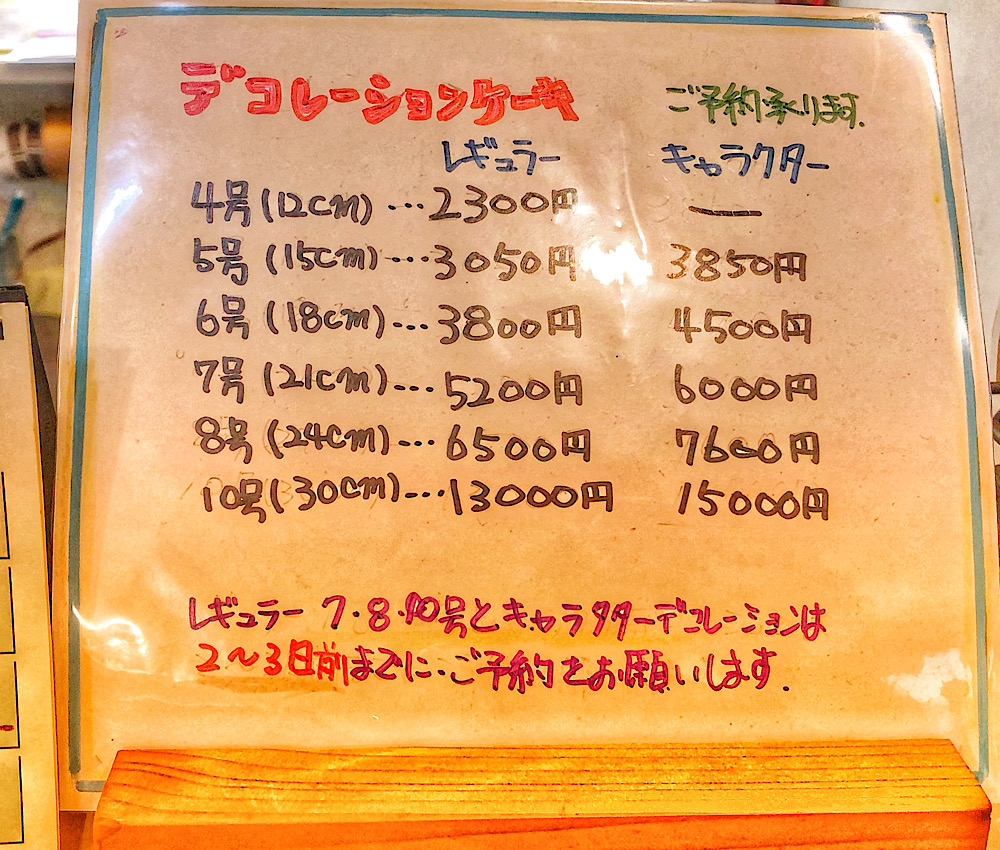 デコレーションケーキ ご予約承ります.
レギュラー キャラクター
4号(12cm)…2300円 —
5号(15cm)…3050円 3850円
6号(18cm)…3800円 4500円
7号(21cm)…5200円 6000円
8号(24cm)…6500円 7600円
10号(30cm)…13000円 15000円
レギュラー 7・8・10号とキャラクターデコレーションは
2〜3日前までに、ご予約をお願いします.